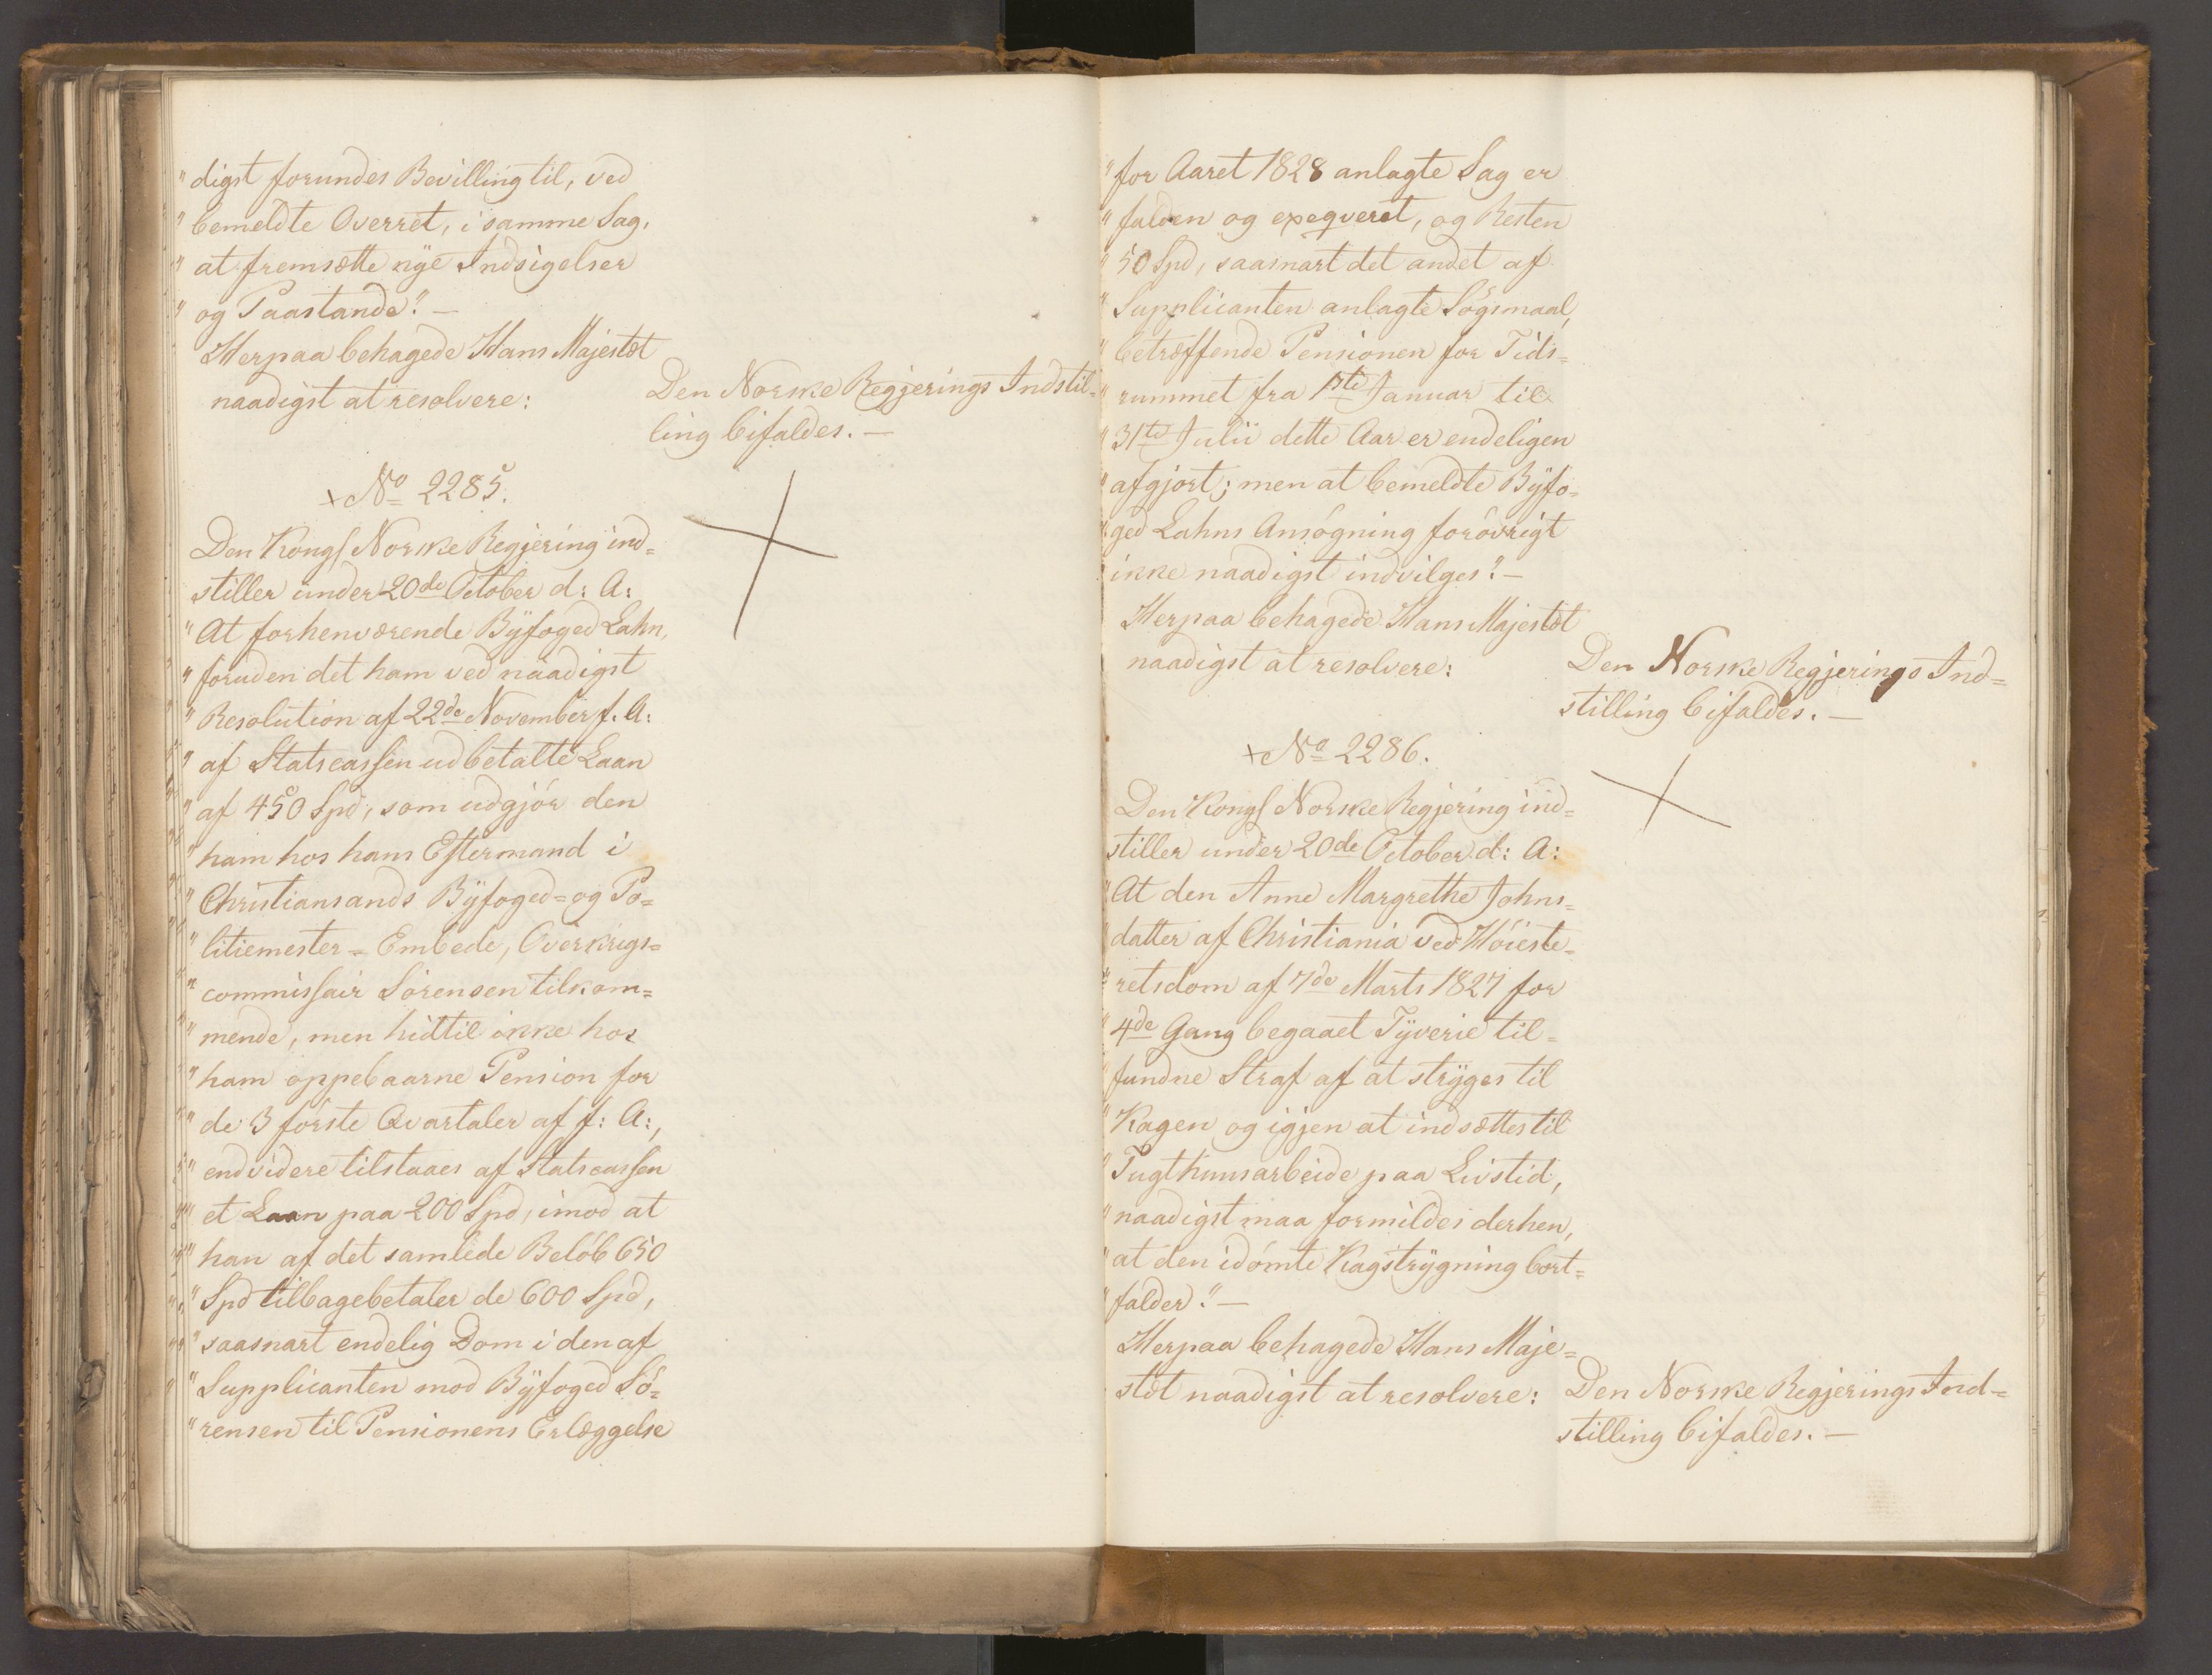 "digst forundes Bevilling til, ved
"bemeldte Overret, i samme Sag,
"at fremsætte nye Indsigelser
"og Paastande." —
Herpaa behagede Hans Majestæt
naadigst at resolvere:
Den Norske Regjerings Indstil=
ling bifaldes. —
+ No 2285.
Den Kongl Norske Regjering ind=
stiller under 20de October d: A:
"At forhenværende Byfoged Lahn,
"foruden det ham ved naadigst
"Resolution af 22de November f. A:
"af Statscassen udbetalte Laan
"af 450 Spd, som udgjör den
"ham hos hans Eftermand i
"Christiansands Byfoged= og Po=
"litiemester=Embede, Overkrigs=
"commissair Sörensen tilkom=
"mende, men hidtil ikke hos
"ham oppebaarne Pension for
"de 3 förste Qvartaler af f: A:,
"endvidere tilstaaes af Statscassen
"et Laan paa 200 Spd, imod at
"han af det samlede Belöb 650
"Spd tilbagebetaler de 600 Spd,
"saasnart endelig Dom i den af
"Supplicanten mod Byfoged Sö=
"rensen til Pensionens Erlæggelse
"for Aaret 1828 anlagte Sag er
"falden og exeqveret, og Resten
"50 Spd, saasnart det andet af
"Supplicanten anlagte Sögsmaal,
"betræffende Pensionen for Tids=
"rummet fra 1ste Januar til
"31te Julii dette Aar er endeligen
"afgjort; men at bemeldte Byfo=
"ged Lahns Ansögning forövrigt
"ikke naadigst indvilges." —
Herpaa behagede Hans Majestæt
naadigst at resolvere:
Den Norske Regjerings Ind=
stilling bifaldes. —
+ No 2286.
Den Kongl Norske Regjering ind=
stiller under 20de October d: A:
"At den Anne Margrethe Johns=
"datter af Christiania ved Höieste=
"retsdom af 7de Marts 1827 for
"4de Gang begaaet Tyverie til=
"fundne Straf af at stryges til
"Kagen og igjen at indsættes til
"Tugthuusarbeide paa Livstid,
"naadigst maa formildes derhen,
"at den idömte Kagstrygning bort=
"falder." —
Herpaa behagede Hans Maje=
stæt naadigst at resolvere:
Den Norske Regjerings Ind=
stilling bifaldes. —